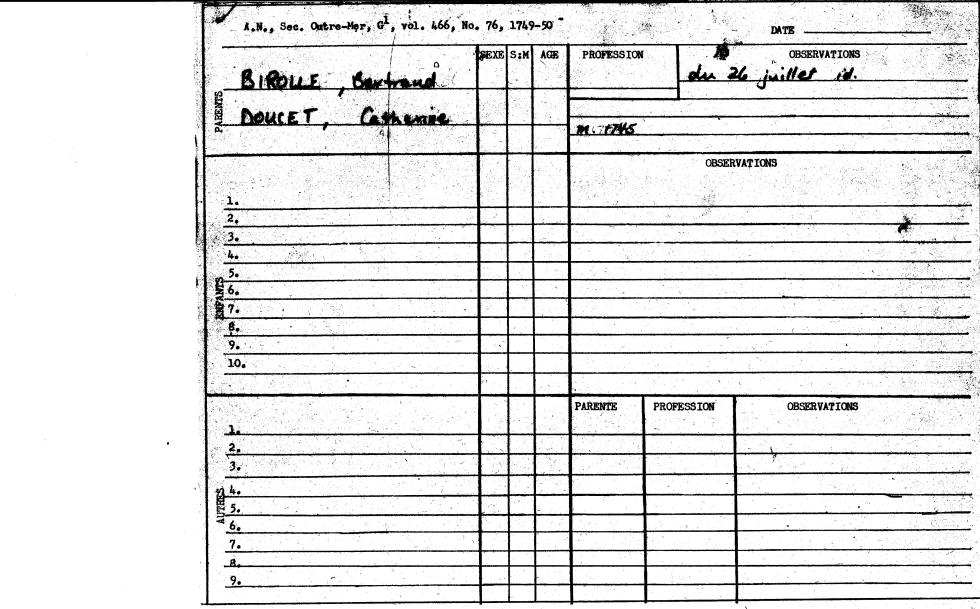 A.N., Sec. Outre-Mer, G1, vol. 466, No. 76, 1749-50
DATE
SEXE S:M AGE PROFESSION OBSERVATIONS
du 26 juillet id.
PARENTS
BIROLLE, Bertrand
DOUCET, Catherine
m. 1745
OBSERVATIONS
ENFANTS
1.
2.
3.
4.
5.
6.
7.
8.
9.
10.
PARENTE PROFESSION OBSERVATIONS
AUTRES
1.
2.
3.
4.
5.
6.
7.
8.
9.